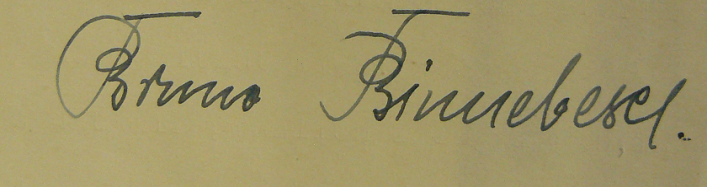 Bruno Binnebesel.